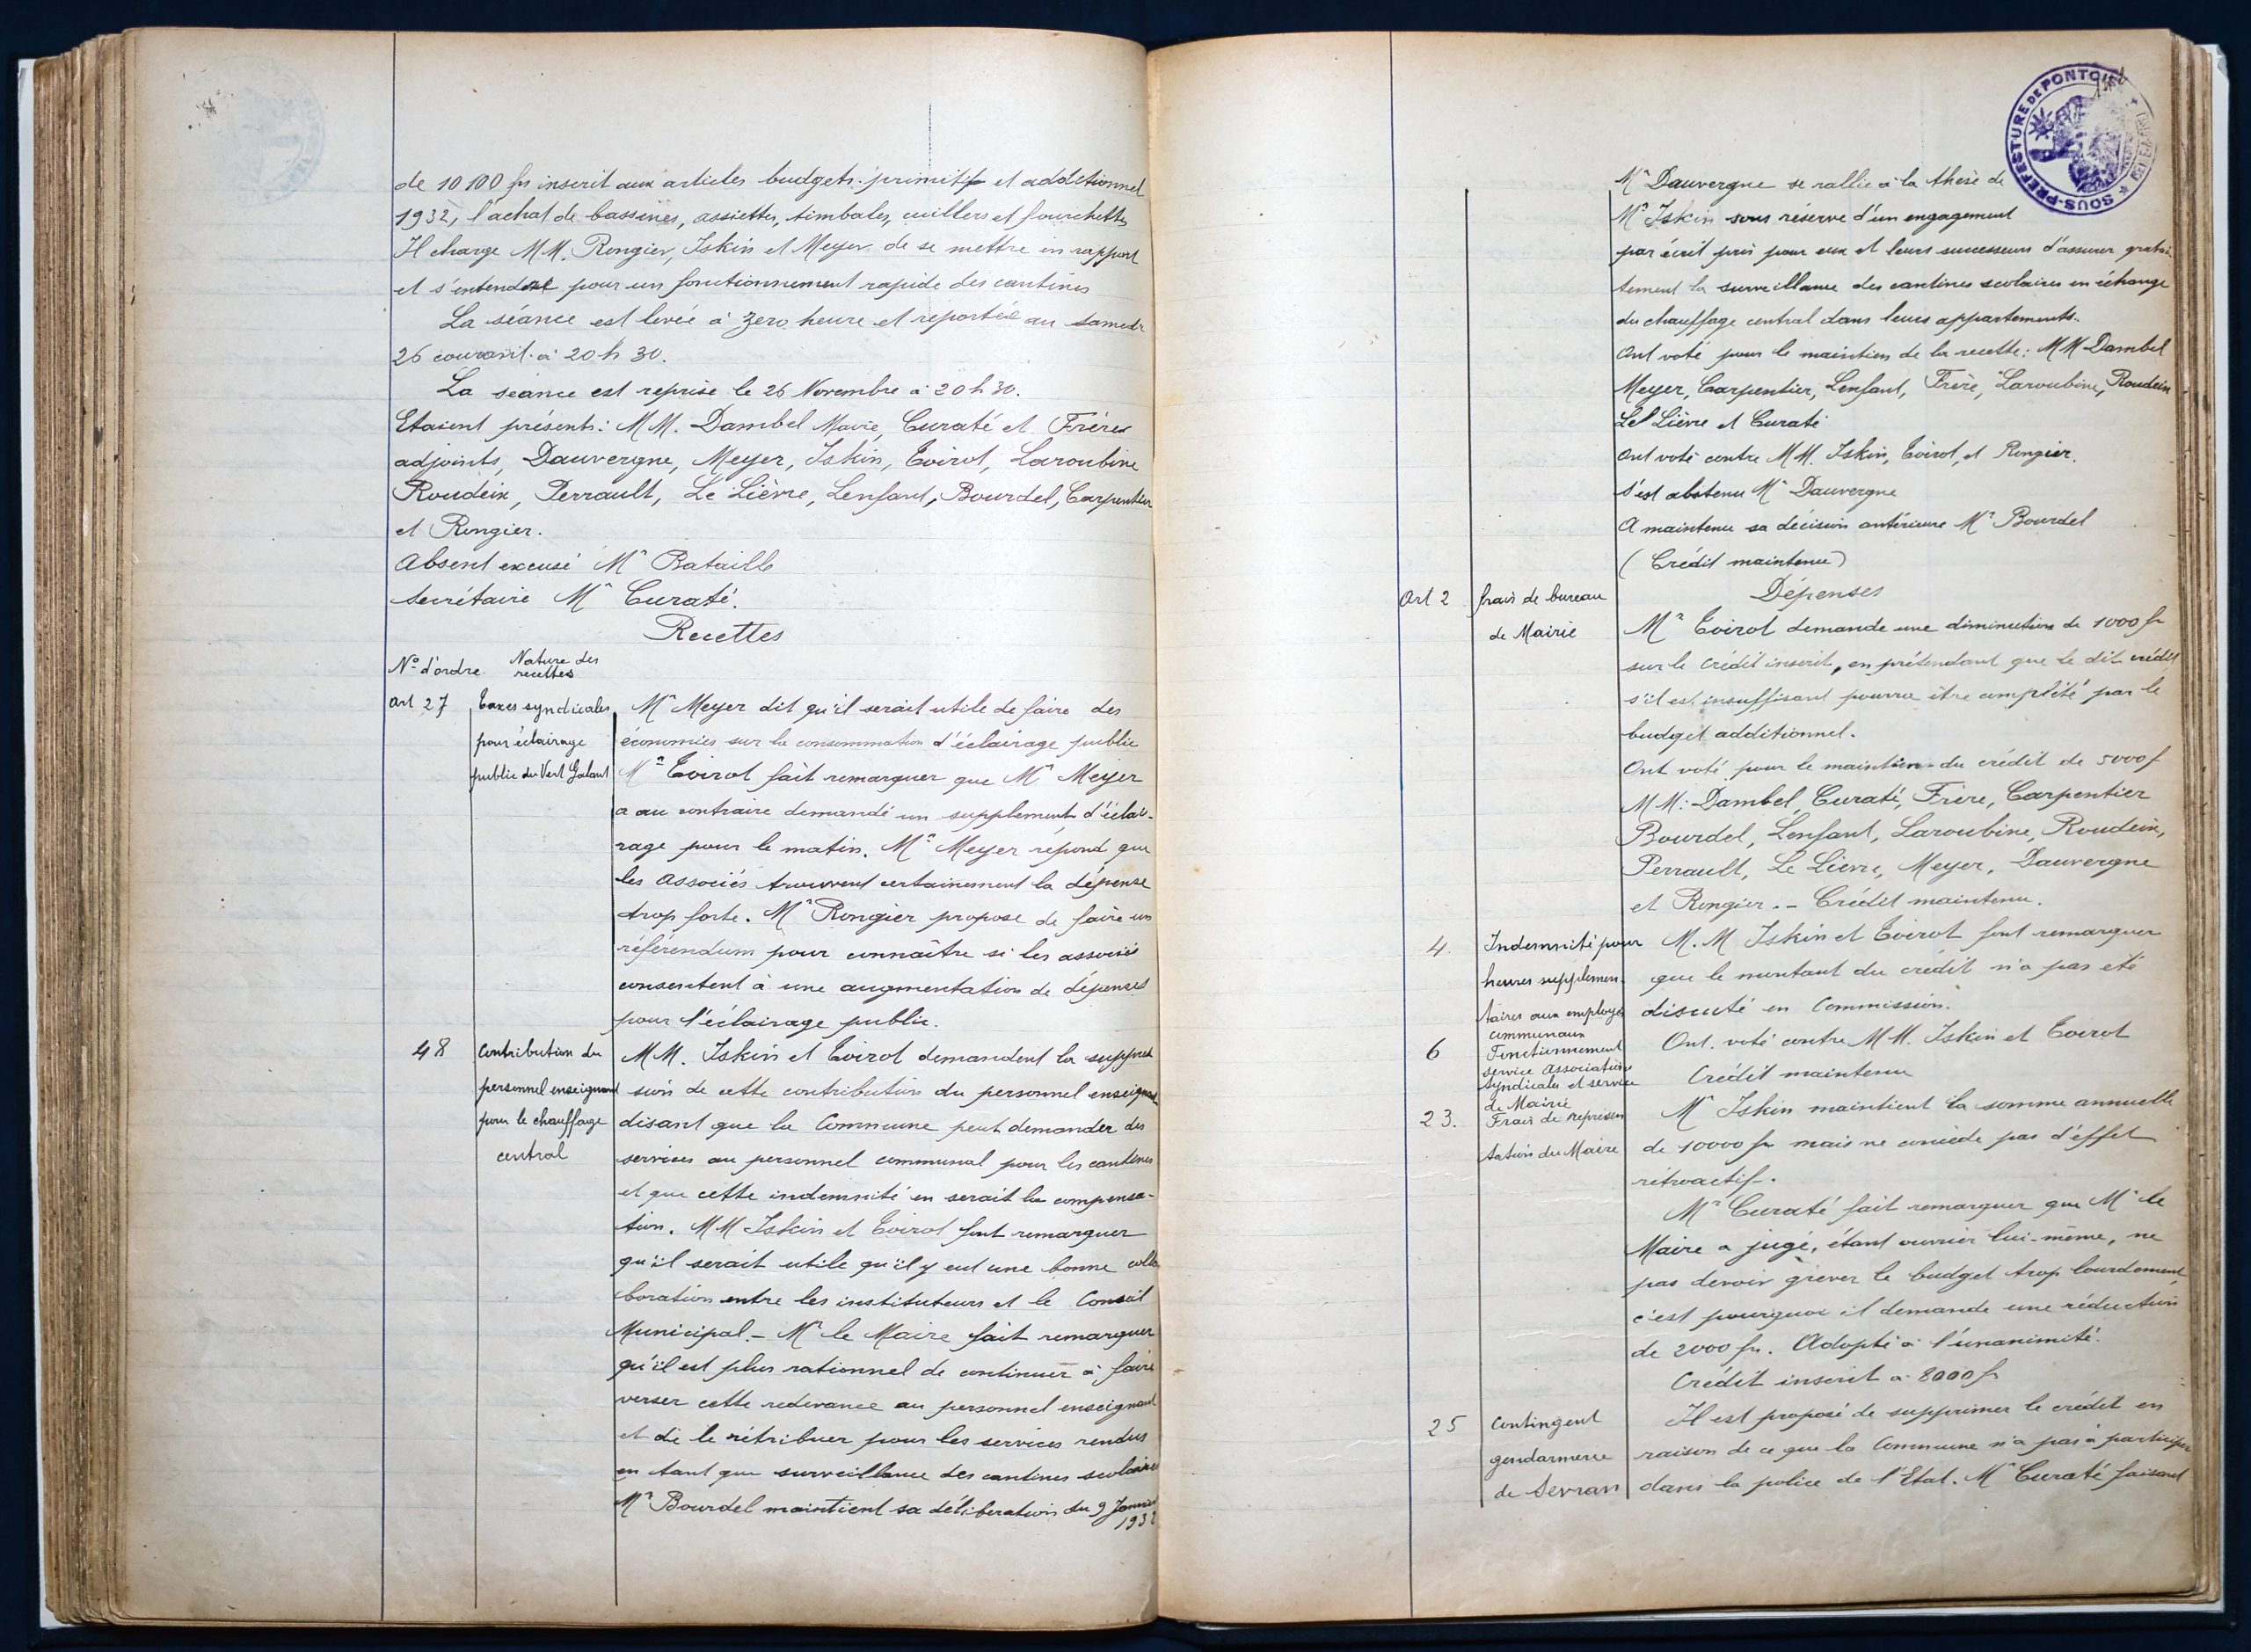 de 10 100 frs inscrit aux articles budgets primitifs et additionnel
1932, l'achat de bassines, assiettes, timbales, cuillers et fourchettes
Il charge MM. Rongier, Iskin et Meyer de se mettre en rapport
et s'entendre pour un fonctionnement rapide des cantines
La séance est levée à zero heure et reportée au samedi
26 courant à 20 h 30.
La séance est reprise le 26 Novembre à 20 h 30.
Etaient présents: MM. Dambel Maire, Curaté et Frère
adjoints, Dauvergne, Meyer, Iskin, Toirot, Laroubine
Roudeix, Perrault, Le Lièvre, Lenfant, Bourdel, Carpentier
et Rongier.
Absent excusé Mr Bataille
Secrétaire Mr Curaté.
Recettes
No d'ordre Nature des
recettes
Art 27 Taxes syndicales Mr Meyer dit qu'il serait utile de faire des
pour éclairage économies sur la consommation d'éclairage public
public du Vert Galant Mr Toirot fait remarquer que Mr Meyer
a au contraire demandé un supplement d'éclai-
rage pour le matin. Mr Meyer répond que
les associés trouvent certainement la dépense
trop forte. Mr Rongier propose de faire un
référendum pour connaître si les associés
consentent à une augmentation de dépenses
pour l'éclairage public.
48 Contribution du MM. Iskin et Toirot demandent la suppres
personnel enseignant sion de cette contribution du personnel enseignant
pour le chauffage disant que la Commune peut demander des
central services au personnel communal pour les cantines
et que cette indemnité en serait la compensa-
tion. MM Iskin et Toirot font remarquer
qu'il serait utile qu'il y eut une bonne colla
boration entre les instituteurs et le Conseil
Municipal.- Mr le Maire fait remarquer
qu'il est plus rationnel de continuer à faire
verser cette redevance au personnel enseignant
et de le rétribuer pour les services rendus
en tant que surveillance des cantines scolaires
Mr Bourdel maintient sa délibération du 9 Janvier
1932
SOUS-PREFECTURE DE PONTOISE
Mr Dauvergne se rallie à la thèse de
Mr Iskin sous réserve d'un engagement
par écrit pris pour eux et leurs successeurs d'assurer gratui-
tement la surveillance des cantines scolaires en échange
du chauffage central dans leurs appartements.
Ont voté pour le maintien de la recette: MM Dambel
Meyer, Carpentier, Lenfant, Frère, Laroubine, Roudeix
Le Lièvre et Curaté
Ont voté contre MM. Iskin, Toirot, et Rongier.
S'est abstenu Mr Dauvergne
A maintenu sa décision antérieure Mr Bourdel
(Crédit maintenu)
Dépenses
Art 2 frais de bureau
de Mairie Mr Toirot demande une diminution de 1000 fr
sur le crédit inscrit, en prétendant que le dit crédit
s'il est insuffisant pourra être complété par le
budget additionnel.
Ont voté pour le maintien du crédit de 5000 f
MM: Dambel, Curaté, Frère, Carpentier
Bourdel, Lenfant, Laroubine, Roudeix,
Perrault, Le Lièvre, Meyer, Dauvergne
et Rongier. - Crédit maintenu.
4. Indemnité pour M.M Iskin et Toirot font remarquer
heures supplémen- que le montant du crédit n'a pas été
taires aux employés discuté en Commission.
communaux
6 Fonctionnement Ont voté contre MM. Iskin et Toirot
service Associations
syndicales et service Crédit maintenu
de Mairie
23. Frais de représen Mr Iskin maintient la somme annuelle
tation du Maire de 10000 fr mais ne concède pas d'effet
rétroactif.
Mr Curaté fait remarquer que Mr le
Maire a jugé, étant ouvrier lui-même, ne
pas devoir grever le budget trop lourdement
c'est pourquoi il demande une réduction
de 2000 fr. Adopté à l'unanimité.
Crédit inscrit à 8000 fr
25 Contingent Il est proposé de supprimer le crédit en
gendarmerie raison de ce que la Commune n'a pas à participer
de Sevran dans la police de l'Etat. Mr Curaté faisant